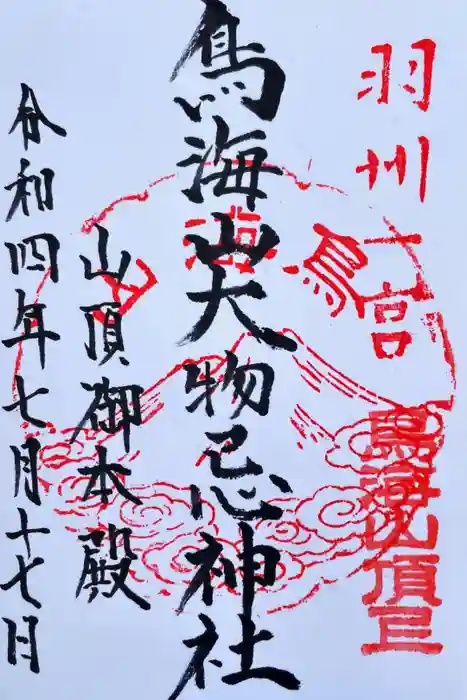 羽州一宮
鳥海山頂上
鳥海山
鳥海山大物忌神社
山頂御本殿
令和四年七月十七日